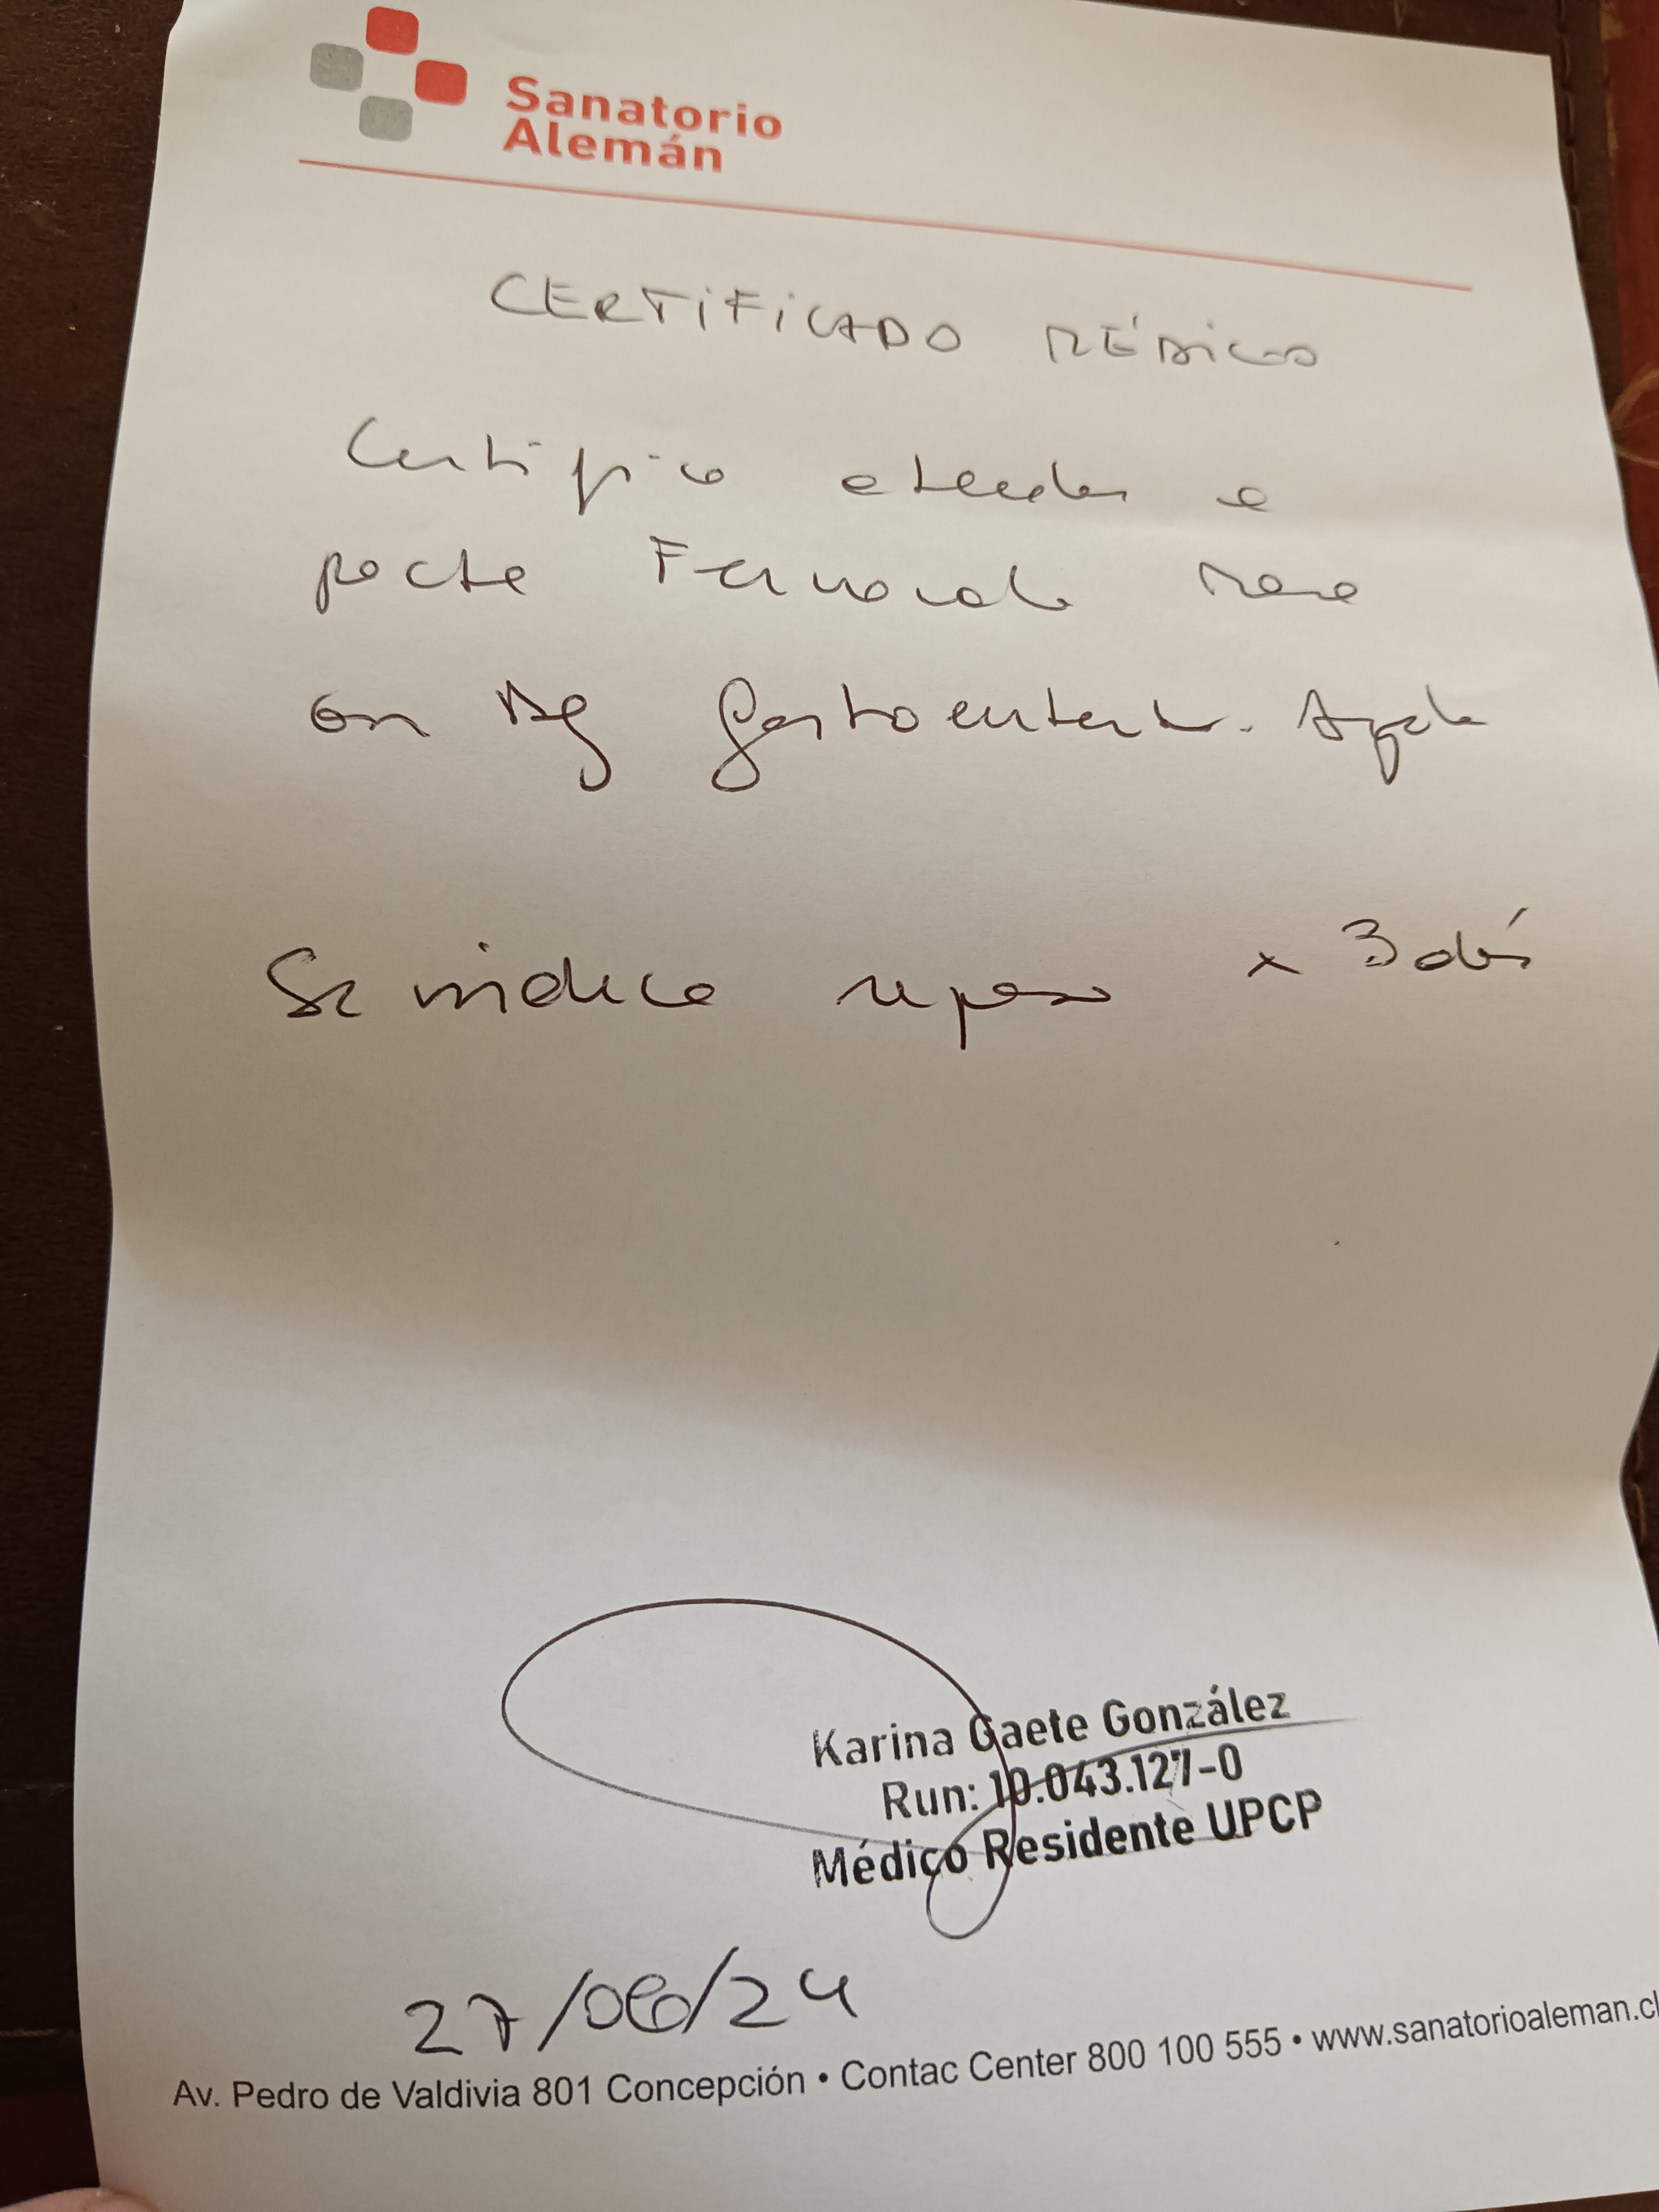 Sanatorio
Alemán
CERTIFICADO MÉDICO
Certifico atender a
pacte Fernando
con Dg gastroenteritis. Aguda
Se indica reposo x 3 días
Karina Gaete González
Run: 10.043.127-0
Médico Residente UPCP
27/06/24
Av. Pedro de Valdivia 801 Concepción • Contac Center 800 100 555 • www.sanatorioaleman.cl